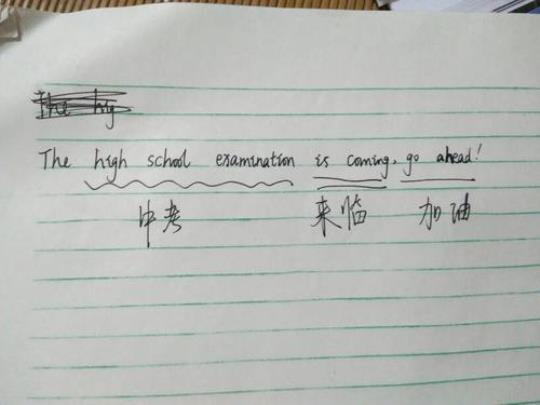 The hig
The high school examination is coming, go ahead!
中考 来临 加油